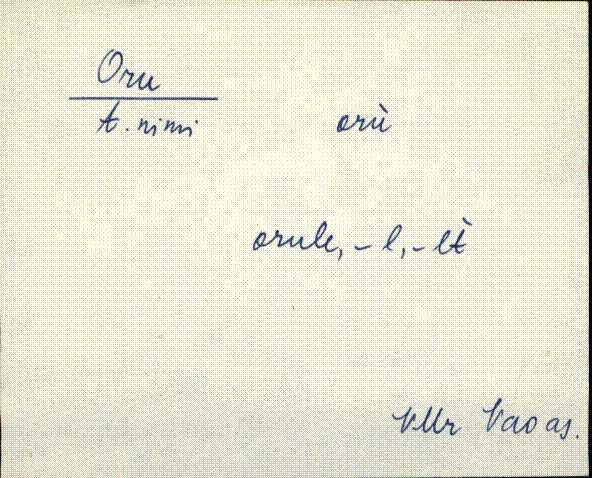 Oru
t. nimi
orù
orule, -l, -lt̀
VMr Vao as.